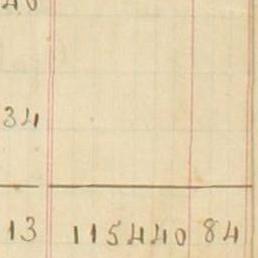 34
13 115440 84